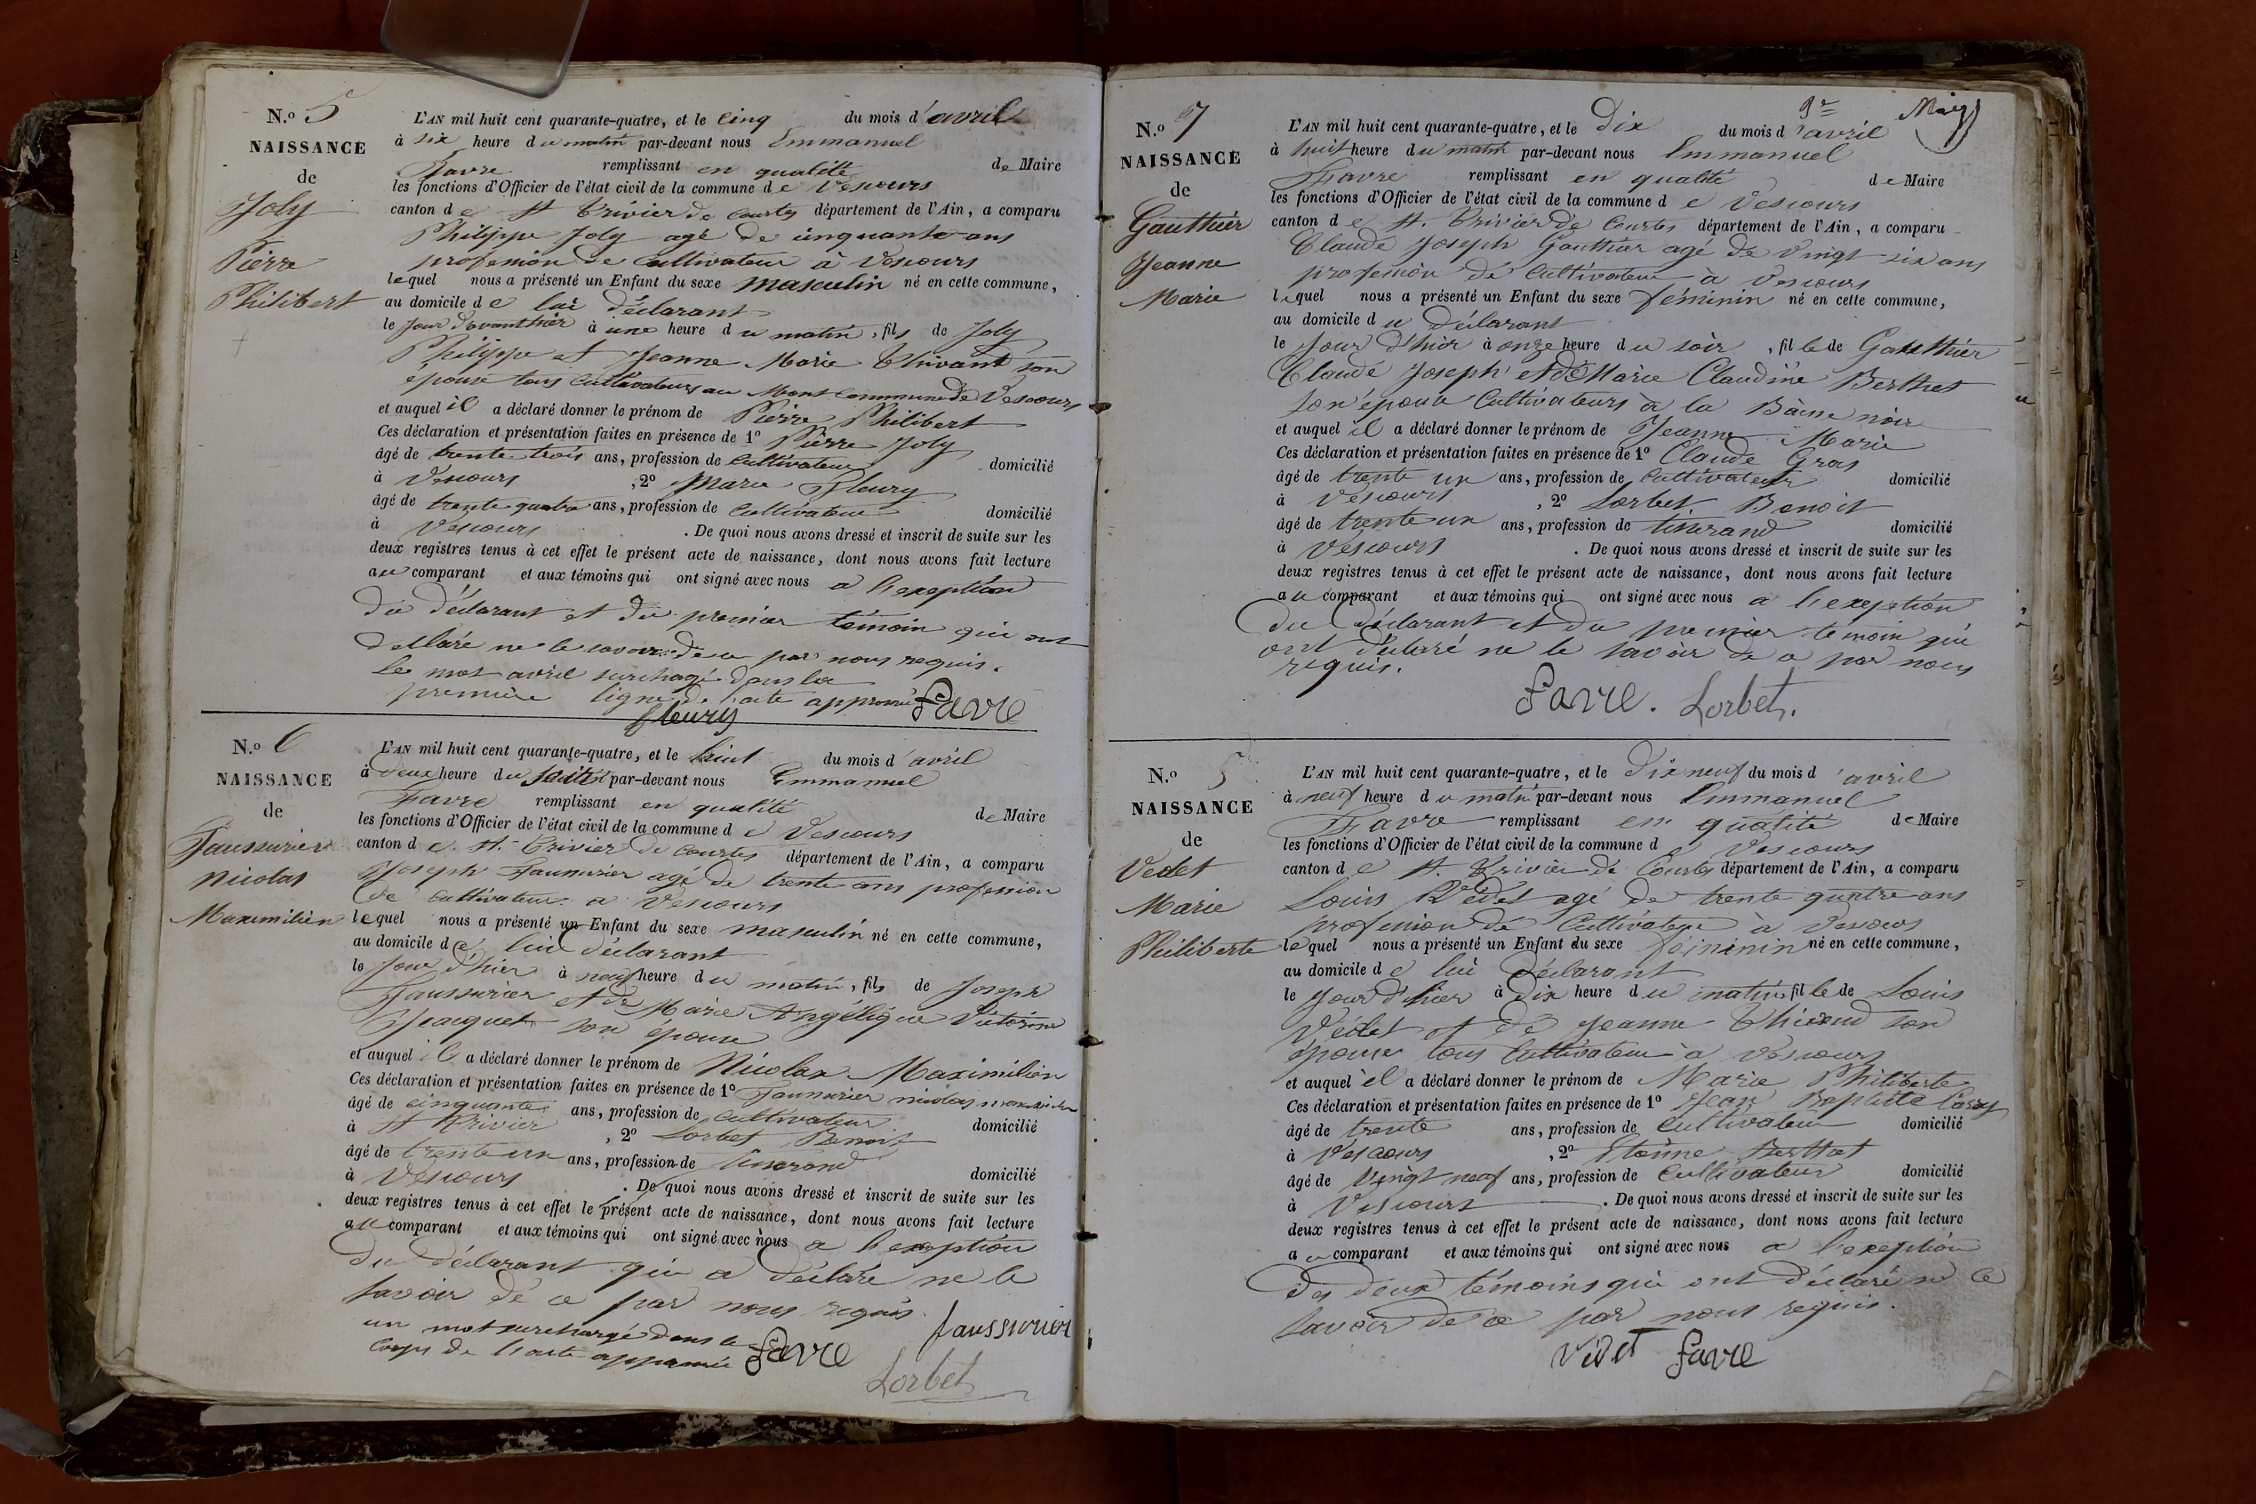 N.º 5
NAISSANCE
de
Joly
Pierre
Philibert
L'AN mil huit cent quarante-quatre, et le cinq du mois d'avril
à six heure du matin par-devant nous Emmanuel
Favre remplissant en qualité de Maire
les fonctions d'Officier de l'état civil de la commune de Vescours
canton de St Trivier de Courtes département de l'Ain, a comparu
Philippe Joly agé de cinquante ans
profession de Cultivateur à Vescours
lequel nous a présenté un Enfant du sexe masculin né en cette commune,
au domicile de lui déclarant
le jour d'avanthier à une heure du matin, fils de Joly
Philippe et Jeanne Marie Thivant son
épouse tous Cultivateurs au Mont Commune de Vescours
et auquel il a déclaré donner le prénom de Pierre Philibert
Ces déclaration et présentation faites en présence de 1º Pierre Joly
âgé de trente trois ans, profession de Cultivateur domicilié
à Vescours, 2º Marie Fleury
âgé de trente quatre ans, profession de Cultivateur domicilié
à Vescours. De quoi nous avons dressé et inscrit de suite sur les
deux registres tenus à cet effet le présent acte de naissance, dont nous avons fait lecture
au comparant et aux témoins qui ont signé avec nous a l'exeption
du déclarant et du premier témoin qui ont
déclaré ne le savoir de ce par nous requis.
le mot avril surchagé dans la
première ligne de l'acte approuvé Favre
fleury
N.º 6
NAISSANCE
de
Faussurier
Nicolas
Maximilien
L'AN mil huit cent quarante-quatre, et le huit du mois d'avril
à deux heure du soir par-devant nous Emmanuel
Favre remplissant en qualité de Maire
les fonctions d'Officier de l'état civil de la commune de Vescours
canton de St Trivier de Courtes département de l'Ain, a comparu
Joseph Faussurier agé de trente ans profession
de cultivateur a Vescours
lequel nous a présenté un Enfant du sexe masculin né en cette commune,
au domicile de lui déclarant
le jour d'hier à neuf heure du matin, fils de Joseph
Faussurier et de Marie Angélique Victorine
Jacquet son épouse
et auquel il a déclaré donner le prénom de Nicolas Maximilien
Ces déclaration et présentation faites en présence de 1º Faussurier nicolas maximilien
âgé de cinquante ans, profession de cultivateur domicilié
à St Trivier, 2º Lorbet Benoit
âgé de trente un ans, profession de tisserand domicilié
à Vescours. De quoi nous avons dressé et inscrit de suite sur les
deux registres tenus à cet effet le présent acte de naissance, dont nous avons fait lecture
au comparant et aux témoins qui ont signé avec nous a l'exeption
du déclarant qui a déclaré ne le
savoir de ce par nous requis.
un mot surchargé dans le
corps de l'acte approuvé Favre
faussurier
Lorbet
9re May
N.º 7
NAISSANCE
de
Gauthier
Jeanne
Marie
L'AN mil huit cent quarante-quatre, et le Dix du mois d'avril
à huit heure du matin par-devant nous Emmanuel
Favre remplissant en qualité de Maire
les fonctions d'Officier de l'état civil de la commune de Vescours
canton de St. Trivier de Courtes département de l'Ain, a comparu
Claude Joseph Gauthier agé de Vingt six ans
profession de Cultivateur à Vescours
lequel nous a présenté un Enfant du sexe féminin né en cette commune,
au domicile du déclarant
le Jour d'hier à onze heure du soir, fille de Gauthier
Claude Joseph et de Marie Claudine Berthet
son épouse Cultivateurs à la
et auquel il a déclaré donner le prénom de Jeanne Marie
Ces déclaration et présentation faites en présence de 1º Claude Gras
âgé de trente un ans, profession de Cultivateur domicilié
à Vescours, 2º Lorbet Benoit
âgé de trente un ans, profession de tisserand domicilié
à Vescours. De quoi nous avons dressé et inscrit de suite sur les
deux registres tenus à cet effet le présent acte de naissance, dont nous avons fait lecture
au comparant et aux témoins qui ont signé avec nous a l'exeption
du déclarant et du premier témoin qui
ont déclaré ne le savoir de ce par nous
requis.
Favre. Lorbet.
N.º
NAISSANCE
de
Vedet
Marie
Philiberte
L'AN mil huit cent quarante-quatre, et le dix neuf du mois d'avril
à neuf heure du matin par-devant nous Emmanuel
Favre remplissant en qualité de Maire
les fonctions d'Officier de l'état civil de la commune de Vescours
canton de St. Trivier de Courtes département de l'Ain, a comparu
Louis Vedet agé de trente quatre ans
profession de Cultivateur à Vescours
lequel nous a présenté un Enfant du sexe féminin né en cette commune,
au domicile de lui déclarant
le Jour d'hier à dix heure du matin, fille de Louis
Vedet et de Jeanne son
épouse tous Cultivateur à Vescours
et auquel il a déclaré donner le prénom de Marie Philiberte
Ces déclaration et présentation faites en présence de 1º Jean Baptiste
âgé de trente ans, profession de Cultivateur domicilié
à Vescours, 2º Etienne Berthet
âgé de Vingt neuf ans, profession de Cultivateur domicilié
à Vescours. De quoi nous avons dressé et inscrit de suite sur les
deux registres tenus à cet effet le présent acte de naissance, dont nous avons fait lecture
au comparant et aux témoins qui ont signé avec nous a l'exeption
des deux témoins qui ont déclaré ne le
savoir de ce par nous requis.
Vedet Favre